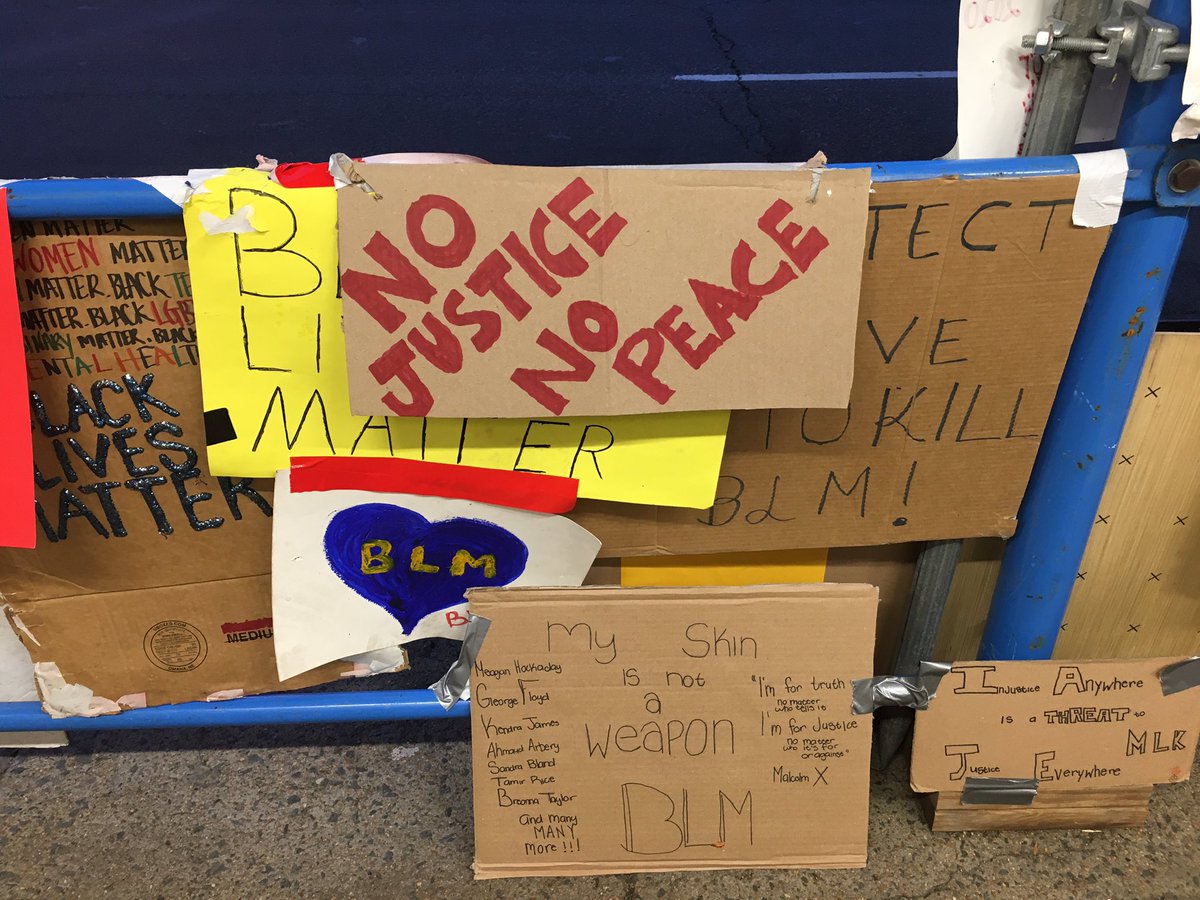 EN MATTER
WOMEN MATTER
MATTER. BLACK TE
MATTER. BLACK LGB
NARY MATTER. BLACK
MENTAL HEALT
BLACK
LIVES
MATTER
MEDIU
B
LI
MATTER
NO
JUSTICE
NO
PEACE
TECT
VE
TO KILL
BLM!
BLM
B
My Skin
is not
a
weapon
BLM
Meagan Hockaday
George Floyd
Kendra James
Ahmaud Arbery
Sandra Bland
Tamir Rice
Breonna Taylor
and many
MANY
more!!!
"I'm for truth
no matter
who tells it
I'm for Justice
no matter
who it's for
or against"
Malcolm X
Injustice Anywhere
is a THREAT to
Justice Everywhere
MLK